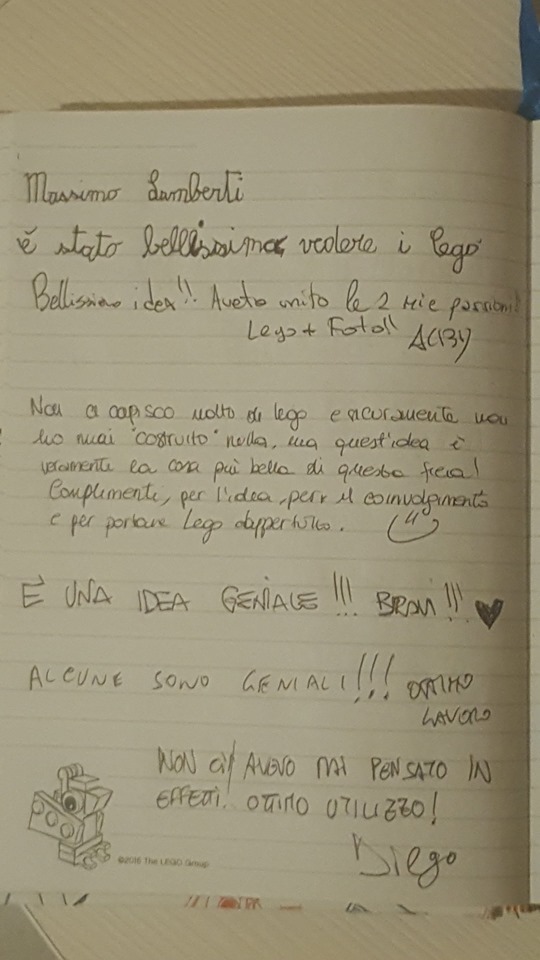 Massimo Lamberti
è stato bellissimo vedere i lego
Bellissimo idea!! Aveto unito le 2 mie passioni!
Lego + Foto!!
Non ci capisco molto di lego e sicuramente non
ho mai "costruito" nulla, ma quest'idea è
veramente la cosa più bella di questa fiera!
Complimenti, per l'idea, per il coinvolgimento
e per portare Lego dappertutto.
È UNA IDEA GENIALE!!! BRAVI!!! ♥
ALCUNE SONO GENIALI!!! OTTIMO
LAVORO
NON CI AVEVO MAI PENSATO IN
EFFETTI, OTTIMO UTILIZZO!
Diego
©2016 The LEGO Group